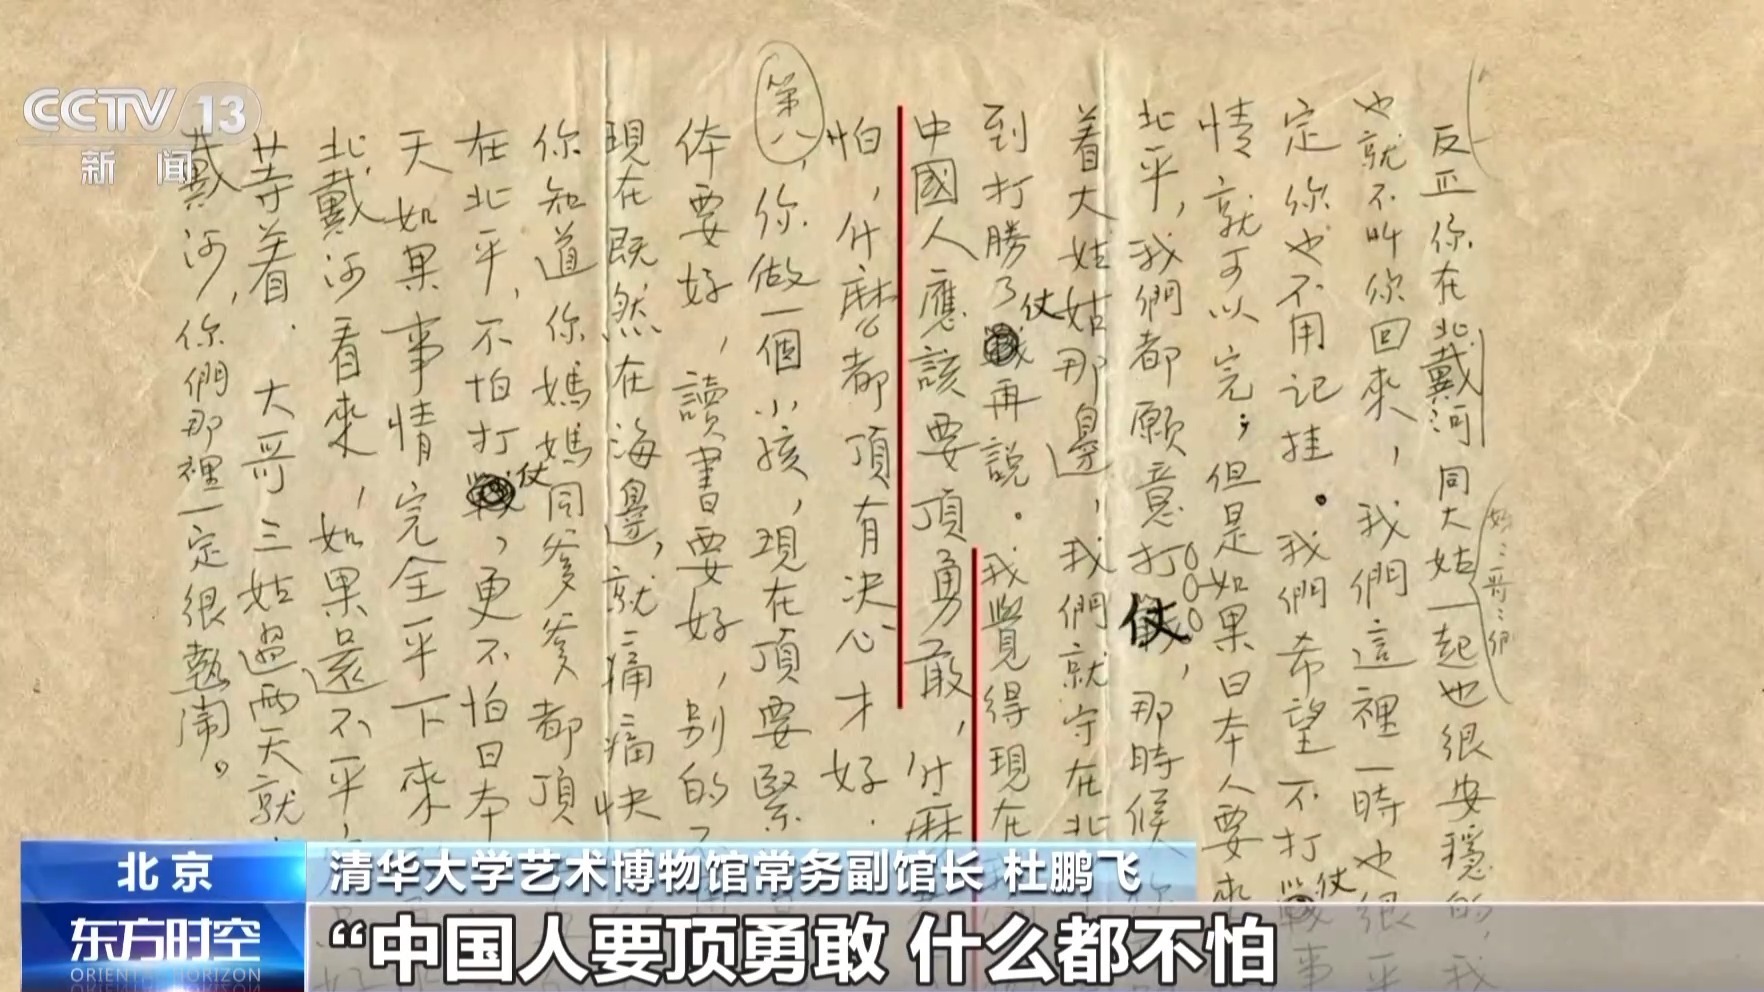 CCTV 13
新闻
反正你在北戴河同大姑一起也很安穩的，我
也就不叫你回來，我們這裡一時也很平
定你也不用记挂。我們希望不打仗事
情就可以完；但是如果日本人要來
北平，我們都願意打仗，那時候你
着大姑姑那邊，我們就守在北
到打勝了仗再説。我覺得現在
中國人應該要頂勇敢，什麼
怕，什麼都頂有決心才好．
第八，你做一個小孩，現在頂要緊
体要好，讀書要好，別的
現在既然在海邊，就痛痛快
你知道你媽媽同爹爹都頂
在北平，不怕打仗，更不怕日本
天如果事情完全平下來
北戴河看來，如果還不平
等着．大哥三姑過兩天就
戴河，你們那裡一定很熱鬧。
北京
清华大学艺术博物馆常务副馆长 杜鹏飞
东方时空
ORIENTAL HORIZON
“中国人要顶勇敢 什么都不怕